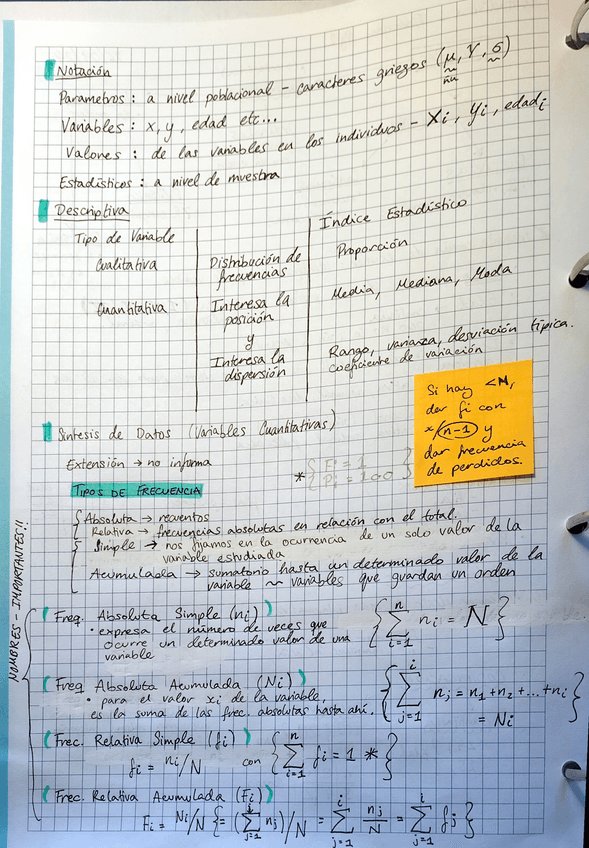 Notación
Parametros : a nivel poblacional - caracteres griegos (μ, γ, σ)
ñu
Variables : x, y, edad etc...
Valores : de las variables en los individuos - Xi, Yi, edadi
Estadísticos : a nivel de muestra
Descriptiva
Tipo de Variable
Índice Estadístico
Cualitativa
Distribución de frecuencias
Proporción
Cuantitativa
Interesa la posición
Media, Mediana, Moda
y
Interesa la dispersión
Rango, varianza, desviación típica.
coeficiente de variación
Si hay <N,
dar fi con
x/(n-1) y
dar frecuencia
de perdidos.
Síntesis de Datos (Variables Cuantitativas)
Extensión → no informa
* { Fi = 1
Pi = 100 }
TIPOS DE FRECUENCIA
Absoluta → recuentos
Relativa → frecuencias absolutas en relación con el total.
Simple → nos fijamos en la ocurrencia de un solo valor de la
variable estudiada
Acumulada → sumatorio hasta un determinado valor de la
variable ~ variables que guardan un orden
NOMBRES - IMPORTANTES!!
(Freq. Absoluta Simple (ni))
• expresa el número de veces que
ocurre un determinado valor de una
variable
{ ∑ i=1 n ni = N }
(Freq. Absoluta Acumulada (Ni))
• para el valor xi de la variable,
es la suma de las frec. absolutas hasta ahí.
{ ∑ j=1 i nj = n1 + n2 + ... + ni
= Ni }
(Frec. Relativa Simple (fi))
fi = ni/N con { ∑ i=1 n fi = 1 * }
(Frec. Relativa Acumulada (Fi))
Fi = Ni/N { = (∑ j=1 i nj)/N = ∑ j=1 i nj/N = ∑ j=1 i fj }